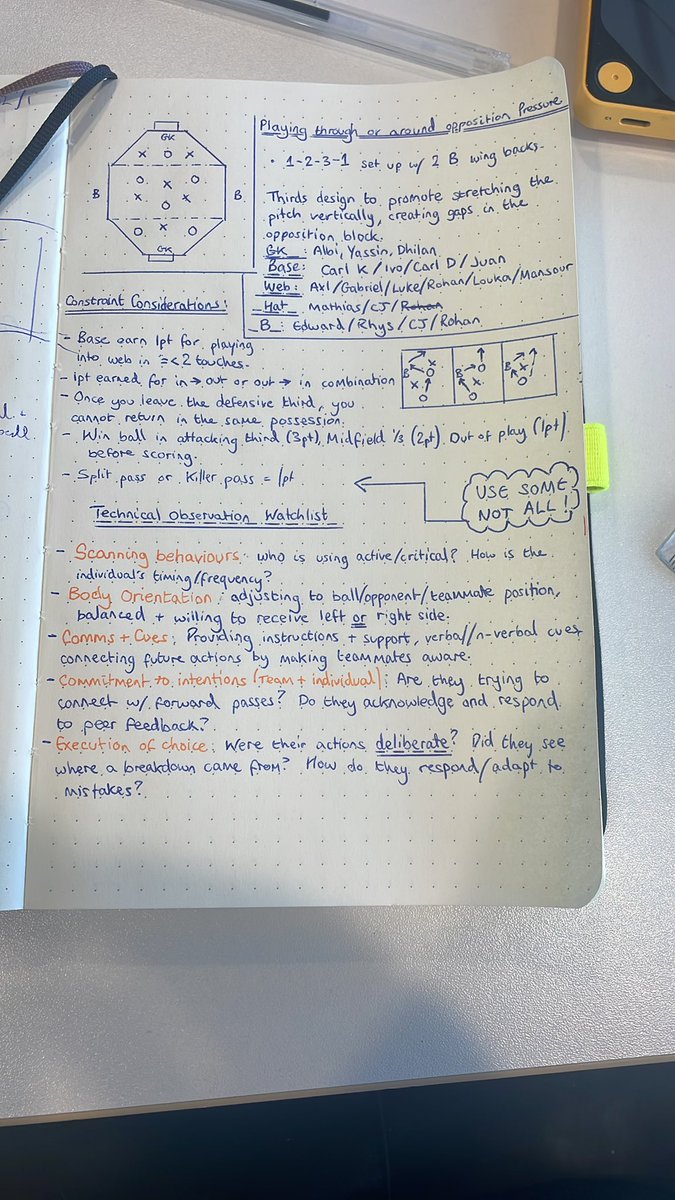 GK
X O X
O X O
B X O X B
O X O
GK
Playing through or around opposition Pressure
• 1-2-3-1 set up w/ 2 B wing backs.
Thirds design to promote stretching the
pitch vertically, creating gaps in the
opposition block.
GK : Albi, Yassin, Dhilan.
Base: Carl K / Ivo/Carl D / Juan
Web: Axl/Gabriel/Luke/Rohan/Louka/Mansour
Hat Mathias/CJ/Rohan
B : Edward/Rhys/CJ/Rohan
Constraint Considerations:
- Base earn 1pt for playing
into web in =<2 touches.
- 1pt earned for in → out or out → in combination
- Once you leave the defensive third, you
cannot return in the same possession.
- Win ball in attacking third (3pt), Midfield 1/3 (2pt). Out of play (1pt).
before scoring.
- Split pass or Killer pass = 1pt
USE SOME
NOT ALL!
Technical Observation Watchlist
- Scanning behaviours: who is using active/critical? How is the
individual's timing/frequency?
- Body Orientation: adjusting to ball/opponent/teammate position,
balanced + willing to receive left or right side.
- Comms + Cues: Providing instructions + support, verbal/n-verbal cues
connecting future actions by making teammates aware.
- Commitment to intentions (Team + individual): Are they trying to
connect w/ forward passes? Do they acknowledge and respond
to peer feedback?
- Execution of choice: Were their actions deliberate? Did they see
where a breakdown came from? How do they respond/adapt to
mistakes?